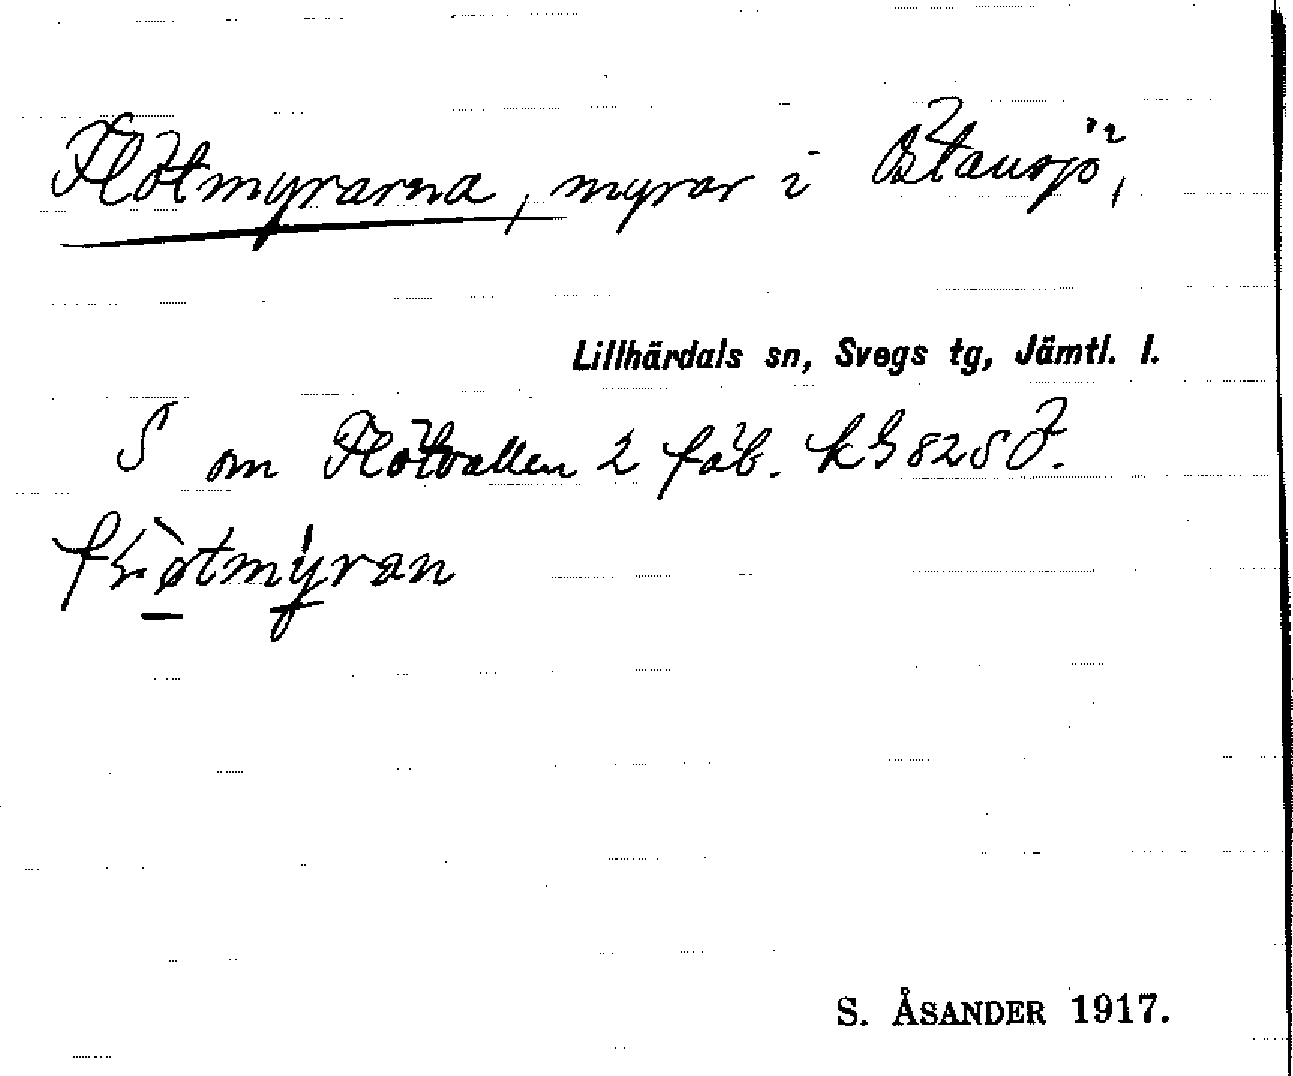 Flötmyrarna, myrar i Östansjö,
Lillhärdals sn, Svegs tg, Jämtl. l.
S om Flötvallen 2 fäb.
S. ÅSANDER 1917.